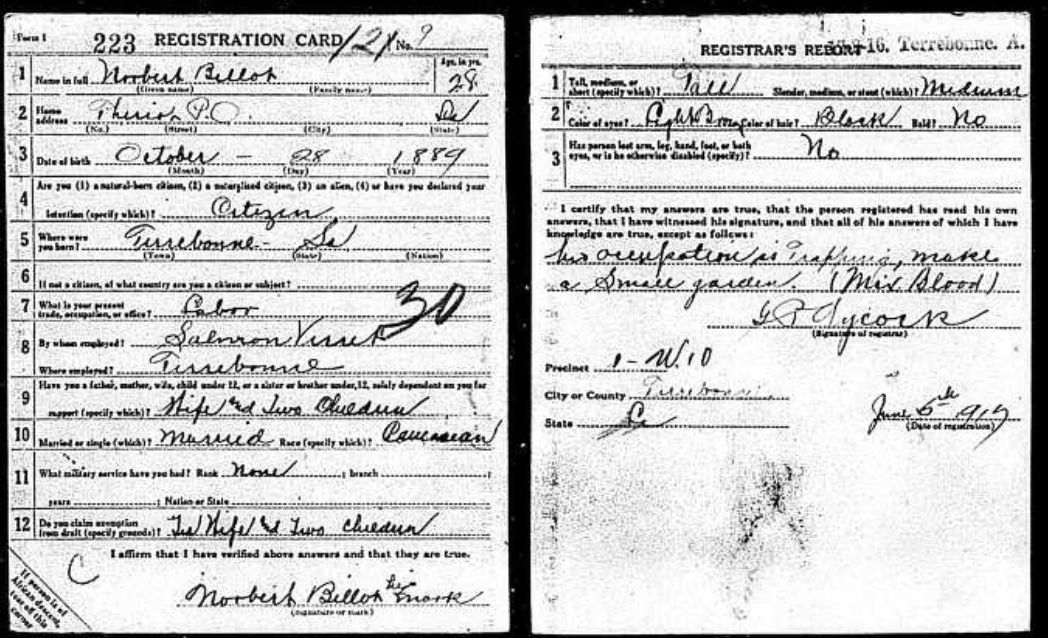 Form 1 223 REGISTRATION CARD 121 No. 9
1 Name in full Norbert Billot Age, in yrs. 28
(Given name) (Family name)
2 Home address Theriot P.O. La
(No.) (Street) (City) (State)
3 Date of birth October - 28 1889
(Month) (Day) (Year)
4 Are you (1) a natural-born citizen, (2) a naturalized citizen, (3) an alien, (4) or have you declared your
intention (specify which)? Citizen
5 Where were you born? Terrebonne - La
(Town) (State) (Nation)
6 If not a citizen, of what country are you a citizen or subject?
7 What is your present trade, occupation, or office? Labor 30
8 By whom employed?
Where employed? Terrebonne
9 Have you a father, mother, wife, child under 12, or a sister or brother under 12, solely dependent on you for
support (specify which)? Wife and Two Children
10 Married or single (which)? Married Race (specify which)? Caucasian
11 What military service have you had? Rank None ; branch ;
years ; Nation or State
12 Do you claim exemption from draft (specify grounds)? Wife and Two Children
I affirm that I have verified above answers and that they are true.
C
Norbert Billot his mark
(Signature or mark)
If person is of
African descent,
tear off this
corner
REGISTRAR'S REPORT 16. Terrebonne. A.
1 Tall, medium, or short (specify which)? Tall Slender, medium, or stout (which)? Medium
2 Color of eyes? Light Brow Color of hair? Black Bald? No
3 Has person lost arm, leg, hand, foot, or both
eyes, or is he otherwise disabled (specify)? No
I certify that my answers are true, that the person registered has read his own
answers, that I have witnessed his signature, and that all of his answers of which I have
knowledge are true, except as follows:
his occupation is Trapping, make
a Small garden. (Mix. Blood)
(Signature of registrar)
Precinct 1-W.10
City or County Terrebonne
State La
June 5th 1917
(Date of registration)